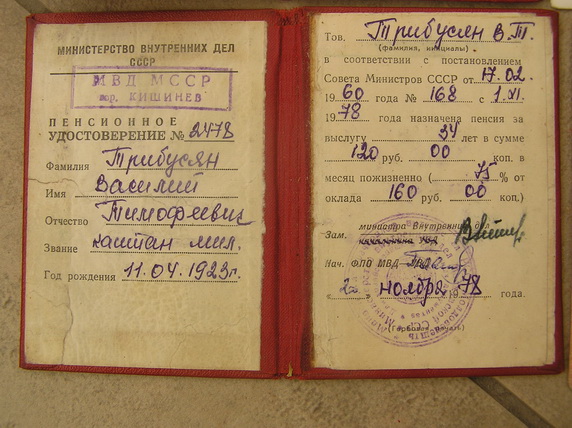 МИНИСТЕРСТВО ВНУТРЕННИХ ДЕЛ
СССР
МВД МССР
гор. КИШИНЕВ
ПЕНСИОННОЕ
УДОСТОВЕРЕНИЕ № 2478
Фамилия Трибусян
Имя Василий
Отчество Тимофеевич
Звание капитан мил.
Год рождения 11.04.1923г.
Тов. Трибусян В.Т.
(фамилия, инициалы)
в соответствии с постановлением
Совета Министров СССР от 17.02.
1960 года № 168 с 1.XI.
1978 года назначена пенсия за
выслугу 34 лет в сумме
120 руб. 00 коп. в
месяц пожизненно ( 75 % от
оклада 160 руб. 00 коп.)
министра Внутренних дел
Зам.
Нач. ФПО МВД
«22 ноября 1978 года.
(Гербовая печать)